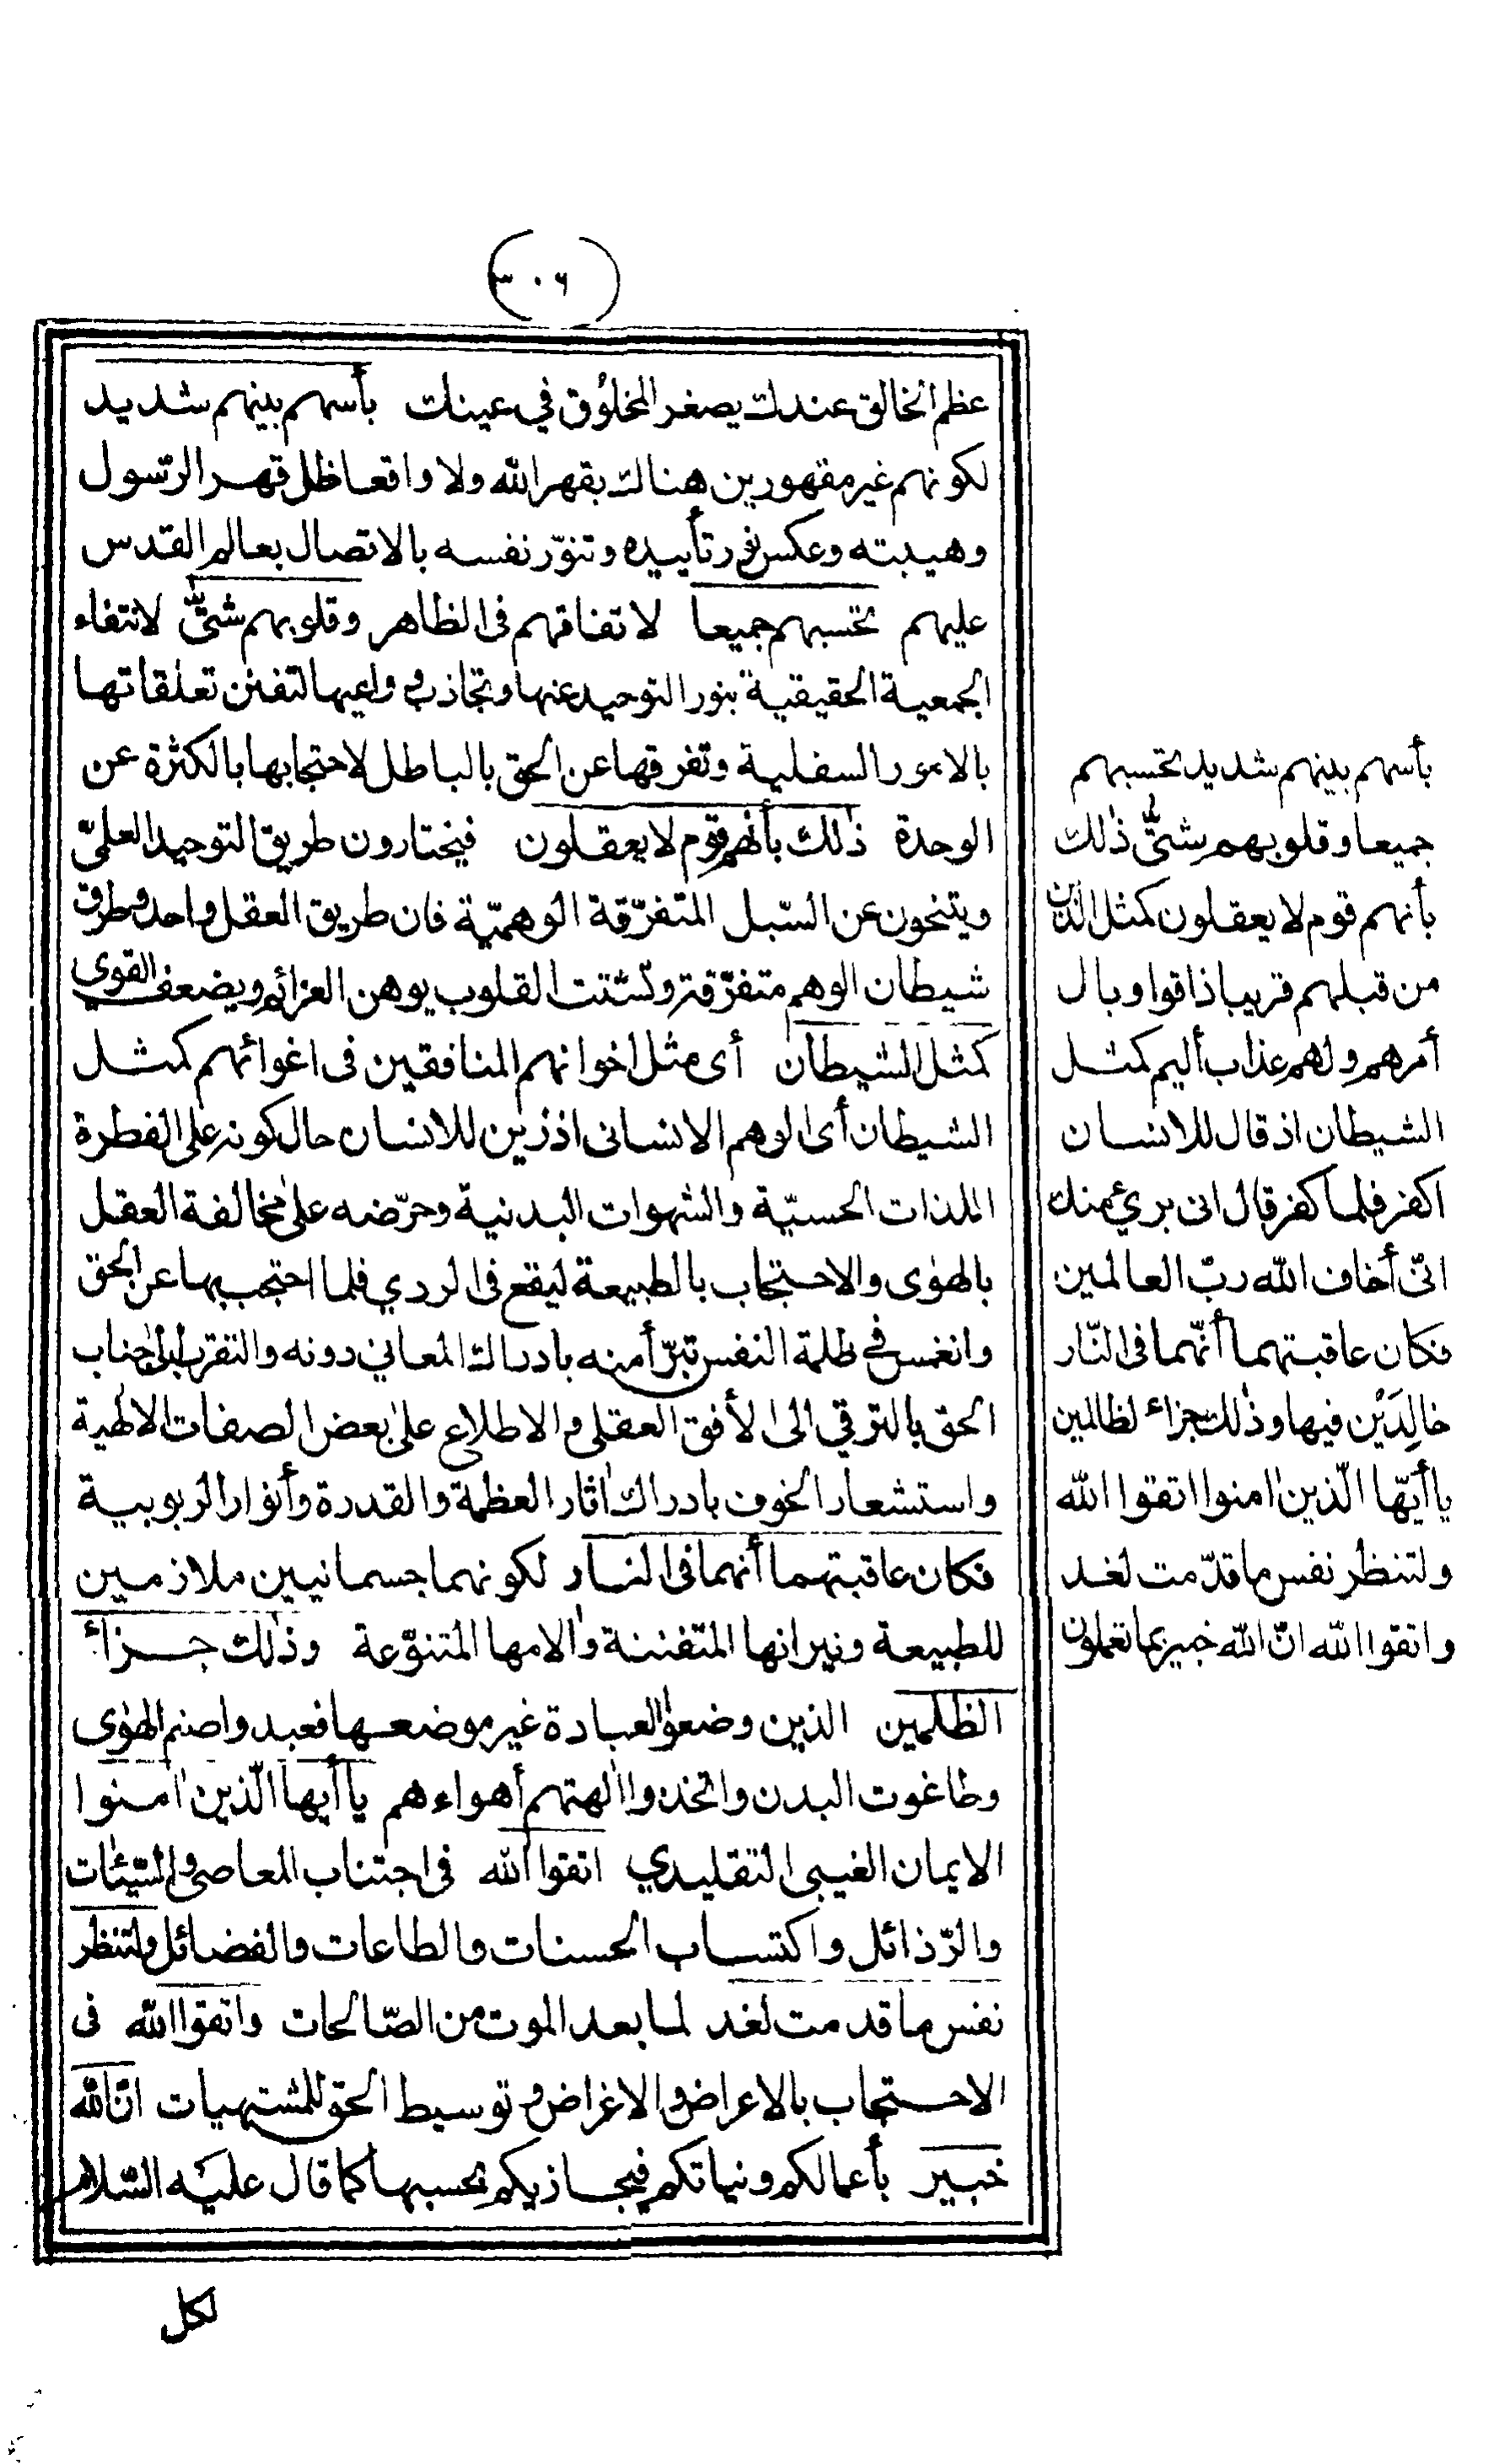 (٣٠٦)
عظم الخالق عندك يصغر المخلوق في عينك بأسهم بينهم شديد
لكونهم غير مقهورين هنالك بقهر الله ولا واقعا ظل قهر الرّسول
وهيبته وعكس نور تأييده وتنوّر نفسه بالاتصال بعالم القدس
عليهم تحسبهم جميعا لاتفاقهم فى الظاهر وقلوبهم شتّى لانتفاء
الجمعية الحقيقية بنور التوحيد عنها وتجاذب دواعيها لتفنن تعلقاتها
بالامور السفلية وتفرقها عن الحق بالباطل لاحتجابها بالكثرة عن
الوحدة ذٰلك بأنهم قوم لا يعقلون فيختارون طريق التوحيد العلمىّ
ويتنحون عن السّبل المتفرّقة الوهميّة فان طريق العقل واحد وطرق
شيطان الوهم متفرّقة وتشتت القلوب يوهن العزائم ويضعف القوي
كمثل الشيطان أى مثل اخوانهم المنافقين فى اغوائهم كمثل
الشيطان أى الوهم الانسانى اذ زين للانسان حال كونه على الفطرة
الملذات الحسيّة والشهوات البدنية وحرّضه على مخالفة العقل
بالهوٰى والاحتجاب بالطبيعة ليقع فى الردي فلما احتجب بها عن الحق
وانغمس في ظلمة النفس تبرّأ منه بادراك المعاني دونه والتقرب الى جناب
الحق بالترقي الى الأفق العقلى والاطلاع على بعض الصفات الالٰهية
واستشعار الخوف بادراك اٰثار العظمة والقدرة وأنوار الربوبية
فكان عاقبتهما أنهما فى النار لكونهما جسمانيين ملازمين
للطبيعة ونيرانها المتفننة واٰلامها المتنوّعة وذٰلك جزاء
الظٰلمين الذين وضعوا العبادة غير موضعها فعبدوا صنم الهوٰى
وطاغوت البدن واتخذوا اٰلهتهم أهواءهم يا أيها الّذين اٰمنوا
الايمان الغيبى التقليدي اتقوا الله فى اجتناب المعاصى والسّيئات
والرّذائل واكتساب الحسنات والطاعات والفضائل ولتنظر
نفس ما قدمت لغد لما بعد الموت من الصّالحات واتقوا الله فى
الاحتجاب بالاعراض والاغراض وتوسيط الحق للمشتهيات انّ الله
خبير بأعمالكم ونياتكم فيجازيكم بحسبها كما قال عليه السّلام
لكل
بأسهم بينهم شديد تحسبهم
جميعا وقلوبهم شتّى ذٰلك
بأنهم قوم لا يعقلون كمثل الذين
من قبلهم قريبا ذاقوا وبال
أمرهم ولهم عذاب أليم كمثل
الشيطان اذ قال للانسان
اكفر فلما كفر قال انى برئ منك
انّى أخاف الله ربّ العالمين
فكان عاقبتهما أنّهما فى النّار
خالِدَيْن فيها وذٰلك جزاء لظالمين
يا أيّها الّذين اٰمنوا اتقوا الله
ولتنظر نفس ما قدّمت لغد
واتقوا الله انّ الله خبير بما تعملون